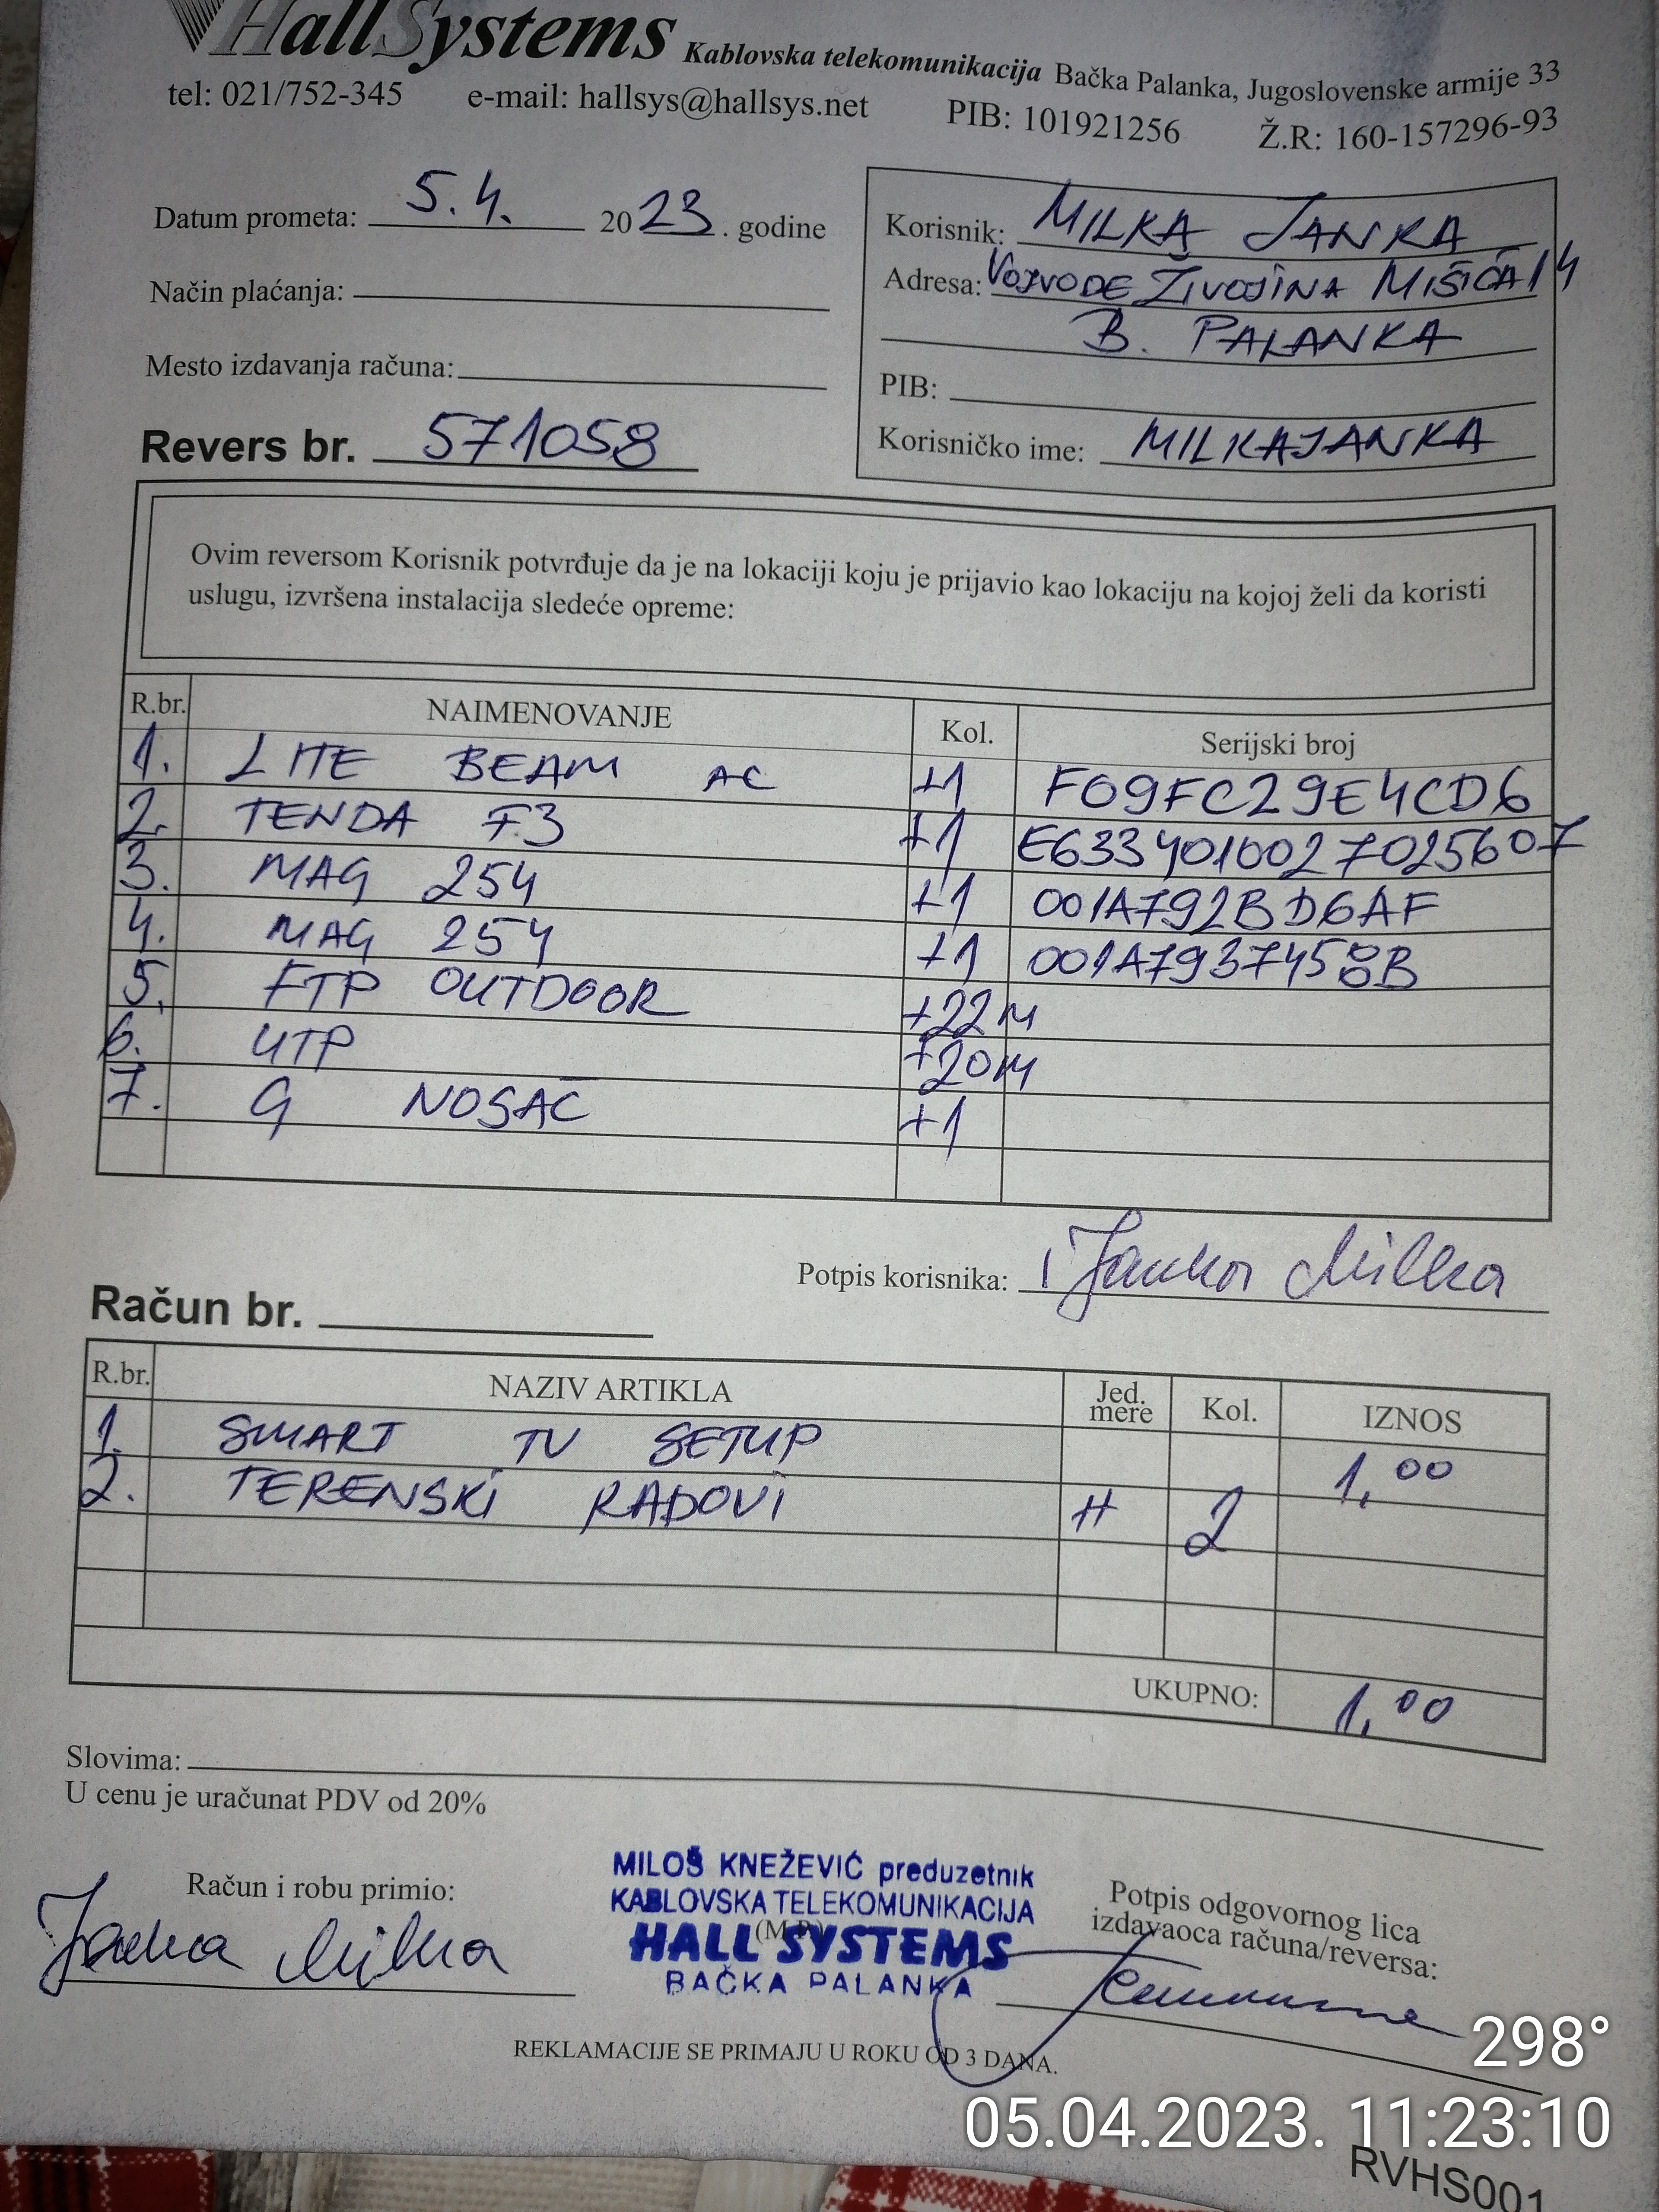 HallSystems Kablovska telekomunikacija Bačka Palanka, Jugoslovenske armije 33
tel: 021/752-345 e-mail: hallsys@hallsys.net PIB: 101921256 Ž.R: 160-157296-93
Datum prometa: 5.4. 2023. godine
Način plaćanja:
Mesto izdavanja računa:
Revers br. 571058
Korisnik: MILKA JANKA
Adresa: VOJVODE ŽIVOJINA MIŠIĆA 14
B. PALANKA
PIB:
Korisničko ime: MILKAJANKA
Ovim reversom Korisnik potvrđuje da je na lokaciji koju je prijavio kao lokaciju na kojoj želi da koristi
uslugu, izvršena instalacija sledeće opreme:
R.br. NAIMENOVANJE Kol. Serijski broj
1. LITE BEAM AC +1 F09FC29E4CD6
2. TENDA F3 +1 E6334010027025607
3. MAG 254 +1 001A792BD6AF
4. MAG 254 +1 001A7937458B
5. FTP OUTDOOR +22M
6. UTP +20M
7. G NOSAČ +1
Potpis korisnika: Janka Milka
Račun br.
R.br. NAZIV ARTIKLA Jed. mere Kol. IZNOS
1. SMART TV SETUP 1,00
2. TERENSKI RADOVI H 2
UKUPNO: 1,00
Slovima:
U cenu je uračunat PDV od 20%
Račun i robu primio:
Janka Milka
MILOŠ KNEŽEVIĆ preduzetnik
KABLOVSKA TELEKOMUNIKACIJA
(M.P.)
HALL SYSTEMS
BAČKA PALANKA
Potpis odgovornog lica
izdavaoca računa/reversa:
REKLAMACIJE SE PRIMAJU U ROKU OD 3 DANA.
298°
05.04.2023. 11:23:10
RVHS001